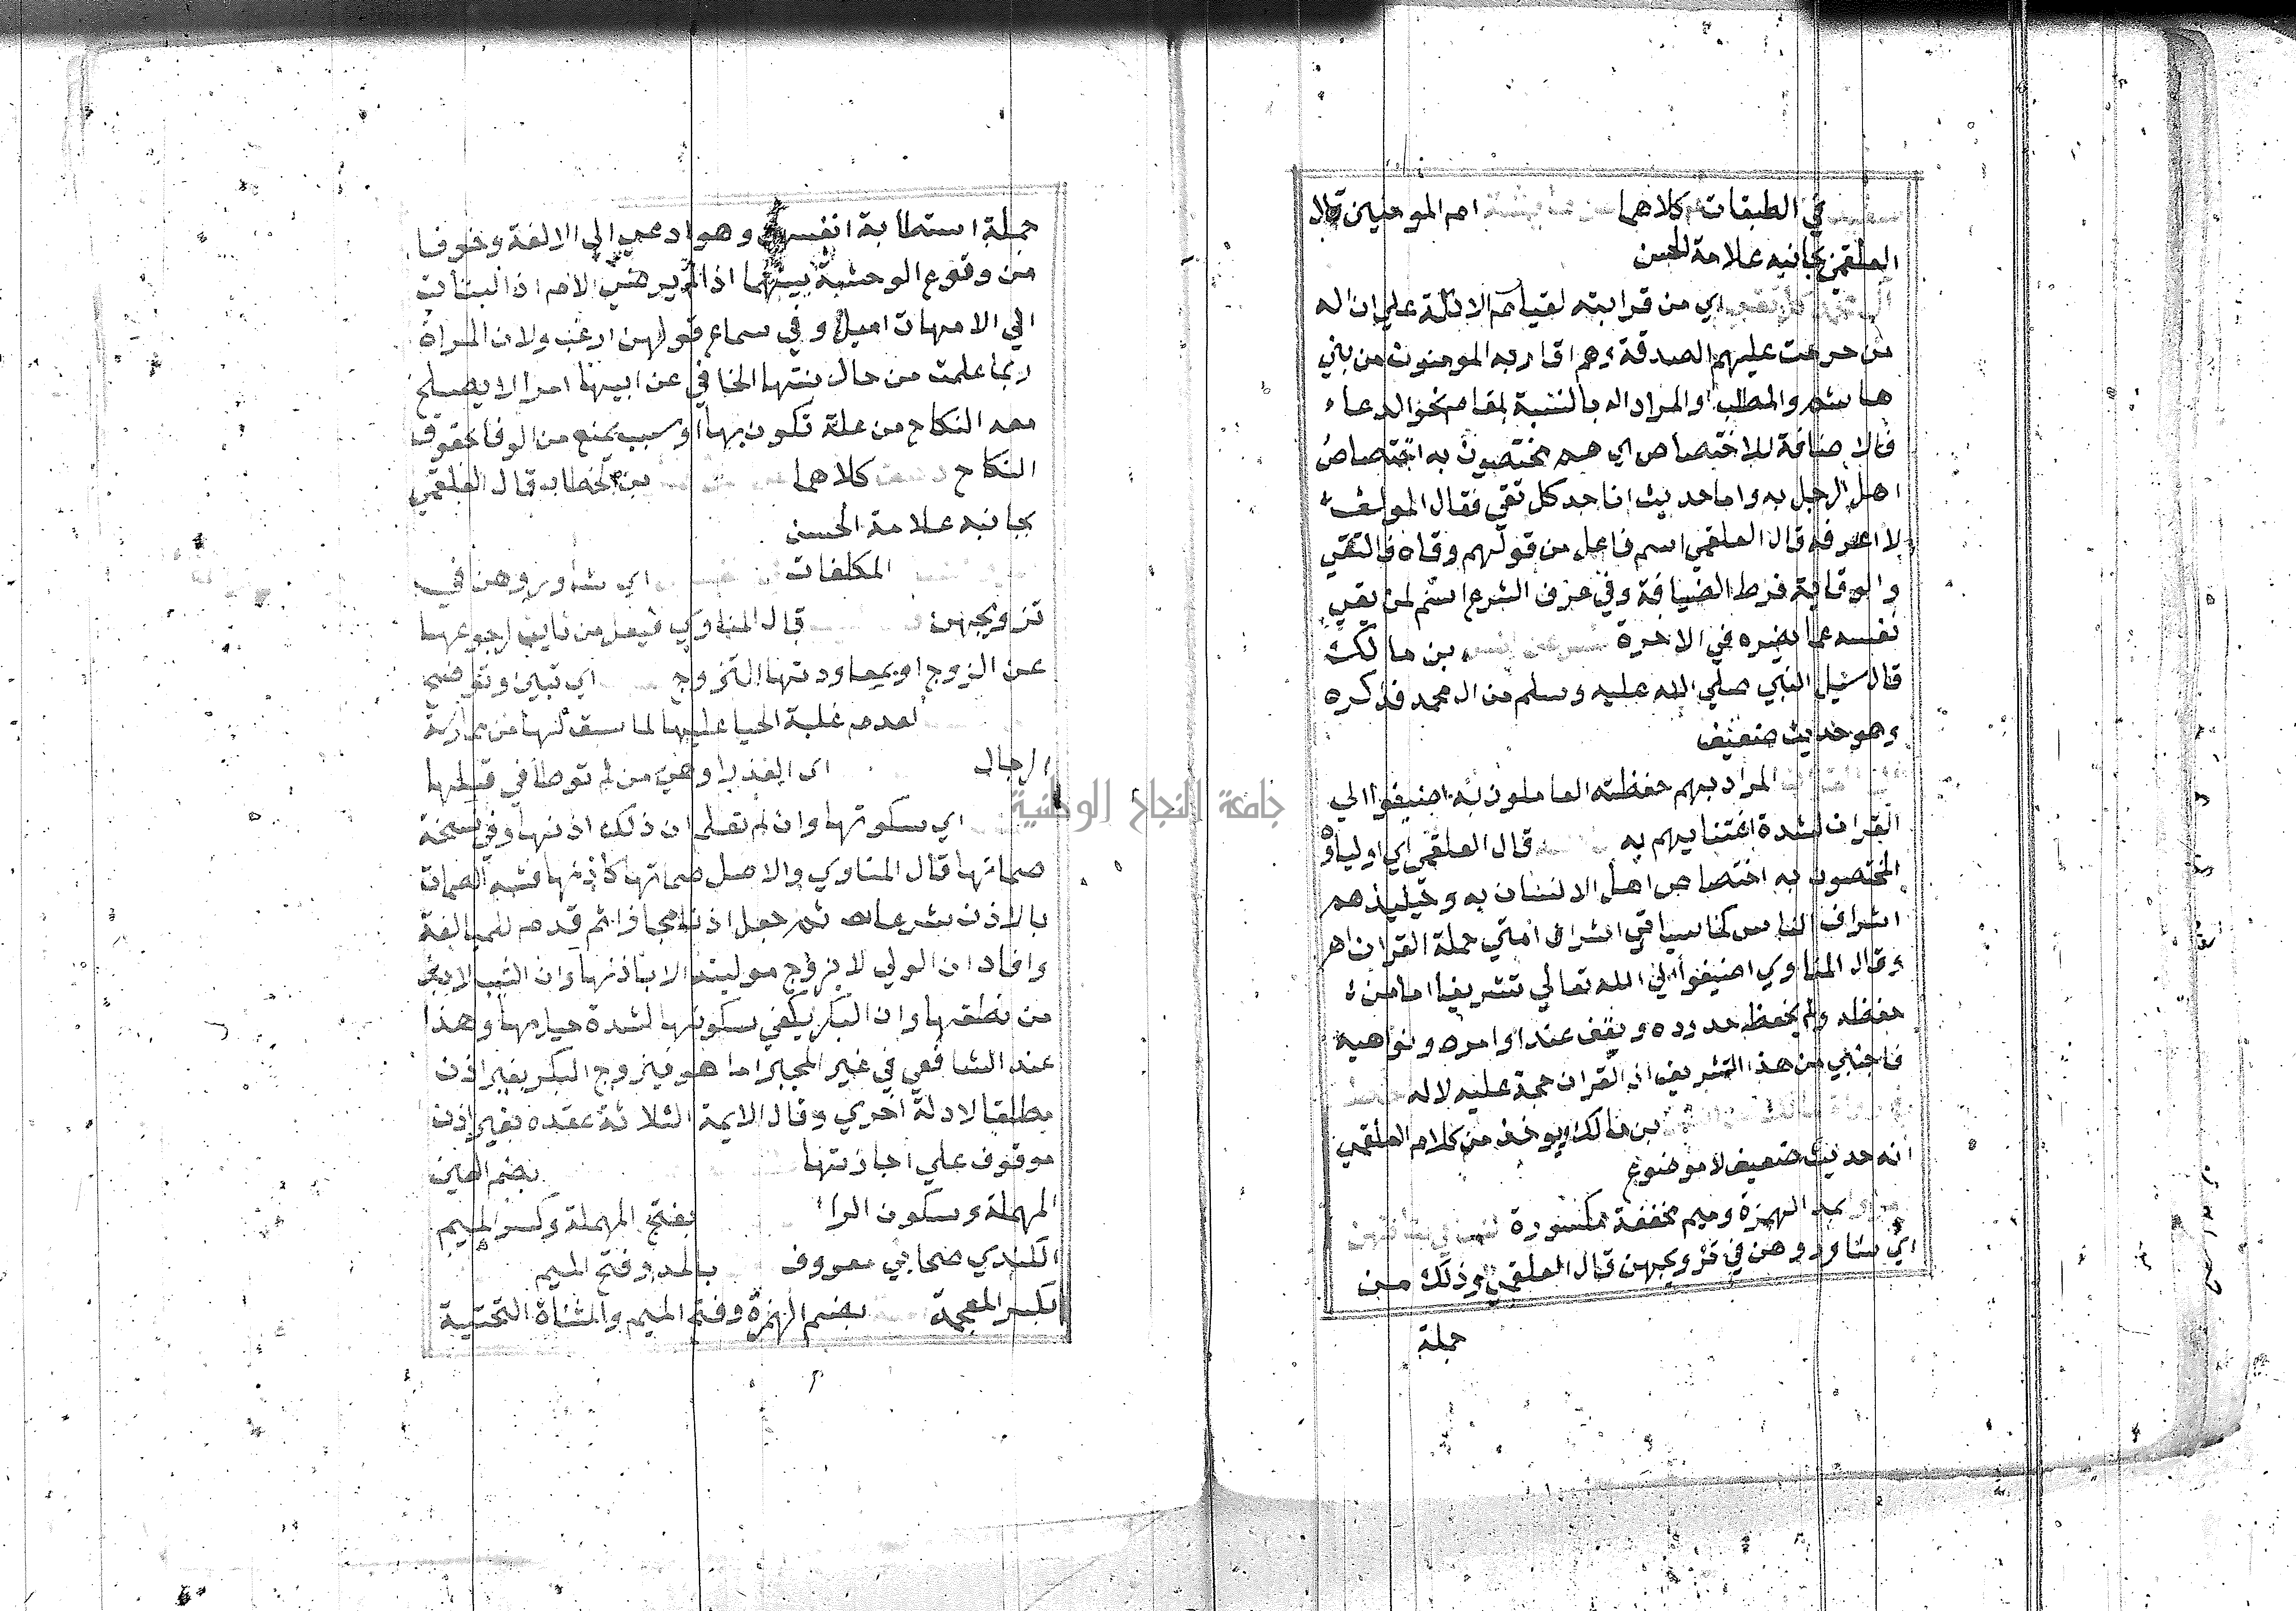 في الطبقات كلاهما ام المومنين قال
العلقمي بجانبه علامة الحسن
اي من قرابته لقيام الادلة علي ان اله
من حرمت عليهم الصدقة وهم اقاربه المومنون من بني
هاشم والمطلب او المراد اله بالنسبة لمقام نحو الدعاء
فالاضافة للاختصاص اي هم مختصون به اختصاص
اهل الرجل به واما حديث انا جد كل تقي فقال المولف
لا اعرفه قال العلقمي اسم فاعل من قولهم وقاه فالتقي
والوقاية فرط الصيانة وفي عرف الشرع اسم لمن يقي
نفسه عما يضره في الاخرة بن مالك
قال سئل النبي صلي الله عليه وسلم من ال محمد فذكره
وهو حديث ضعيف
المراد بهم حفظته العاملون به اضيفوا الي
القران لشدة اعتنايهم به قال العلقمي اي اولياوه
المختصون به اختصاص اهل الانسان به وحينيذ هم
اشراف الناس كما سياتي اشراف امتي حملة القران اهـ
وقال المناوي اضيفوا الي الله تعالي تشريفا اما من
حفظه ولم يحفظ حدوده ويقف عند اوامره ونواهيه
فاجنبي من هذا التشريف اذ القران حجة عليه لا له
بن مالك ويوخذ من كلام العلقمي
انه حديث ضعيف لا موضوع
بمد الهمزة وميم مخففة مكسورة
اي شاوروهن في تزويجهن قال العلقمي وذلك من
جملة
جملة استطابة انفسهن وهو ادعي الي الالفة وخوفا
من وقوع الوحشة بينهما اذا لم يرض الام اذ البنات
الي الامهات اميل وفي سماع قولهن ارغب ولان المراة
ربما علمت من حال بنتها الخافي عن ابيها امرا لا يصلح
معه النكاح من علة تكون بها او سبب يمنع من الوفا بحقوق
النكاح كلاهما بن الخطاب قال العلقمي
بجانبه علامة الحسن
المكلفات اي شاوروهن في
تزويجهن قال المناوي فيعل من ثاب لرجوعها
عن الزوج او بمعاودتها التزوج اي تبين وتوضح
لعدم غلبة الحيا عليها لما سبق لها من ممارسة
الرجال اي العذرا وهي من لم توطا في قبلها
اي سكوتها وان لم تعلم ان ذلك اذنها وفي نسخة
صماتها قال المناوي والاصل صماتها كاذنها فشبه الصمات
بالاذن شرعا ثم جعل اذنا مجازا ثم قدم للمبالغة
وافاد ان الولي لا يزوج موليته الا باذنها وان الثيب لا بد
من نطقها وان البكر يكفي سكوتها لشدة حيايها وهذا
عند الشافعي في غير المجبر اما هو فيزوج البكر بغير اذن
مطلقا لادلة اخري وقال الايمة الثلاثة عقده بغير اذن
موقوف علي اجازتها بضم العين
المهملة وسكون الرا بفتح المهملة وكسر الميم
الكندي صحابي معروف بالمد وفتح الميم
بكسر المعجمة بضم الهمزة وفتح الميم والمثناة التحتية
جامعة النجاح الوطنية